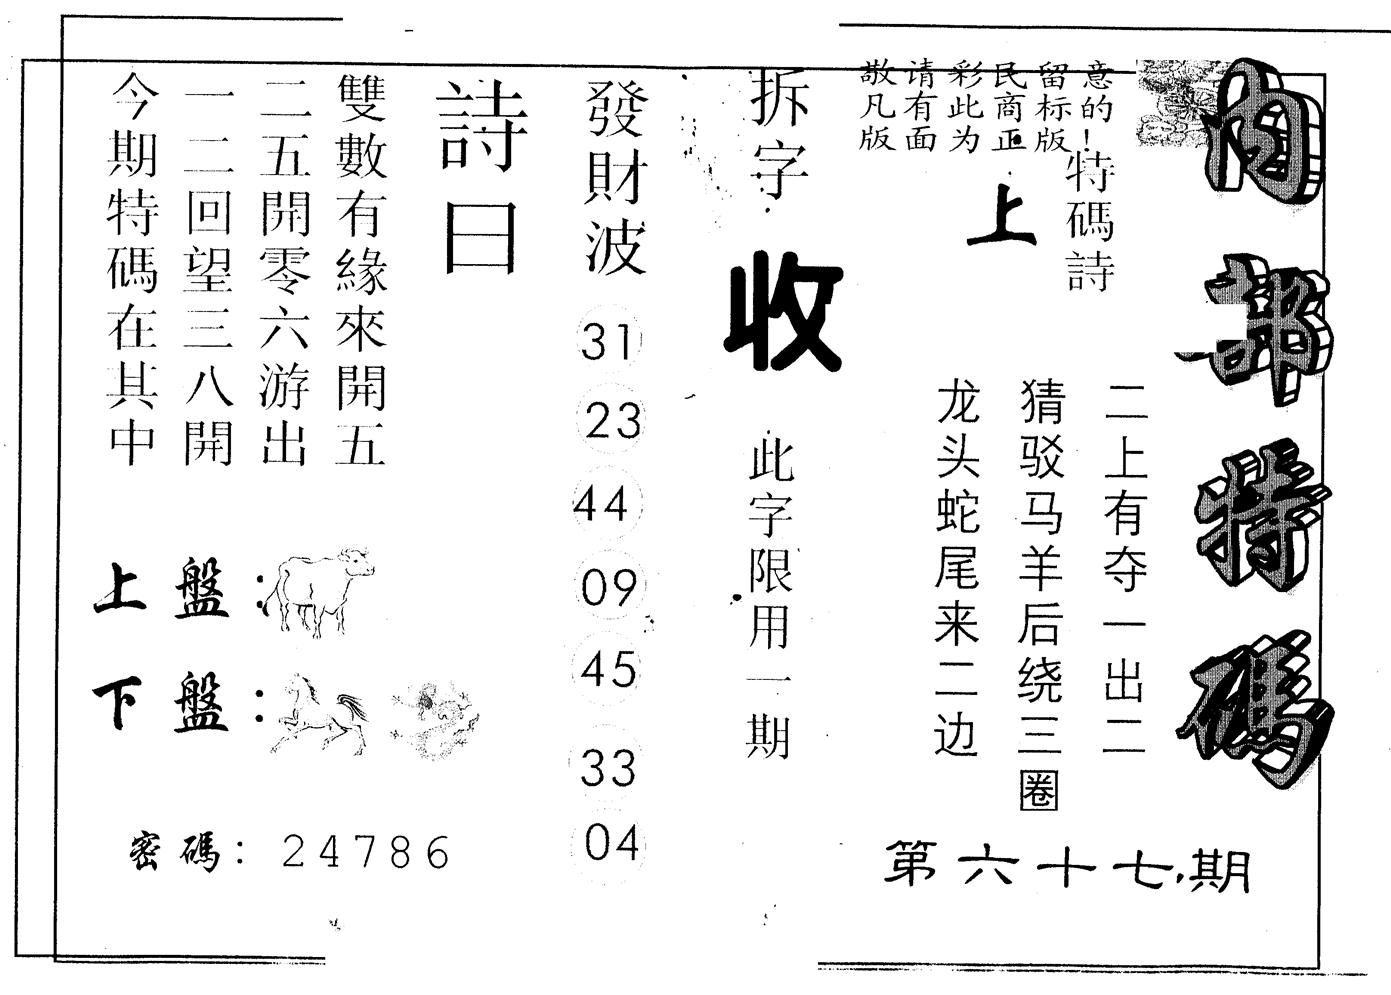 内部特碼
敬请彩民留意
凡有此商标的
版面为正版！
特碼詩
上
二上有夺一出二
猜驳马羊后绕三圈
龙头蛇尾来二边
第六十七期
拆字
收
此字限用一期
發財波
31
23
44
09
45
33
04
詩曰
雙數有緣來開五
二五開零六游出
一二回望三八開
今期特碼在其中
上盤：
下盤：
密碼：24786